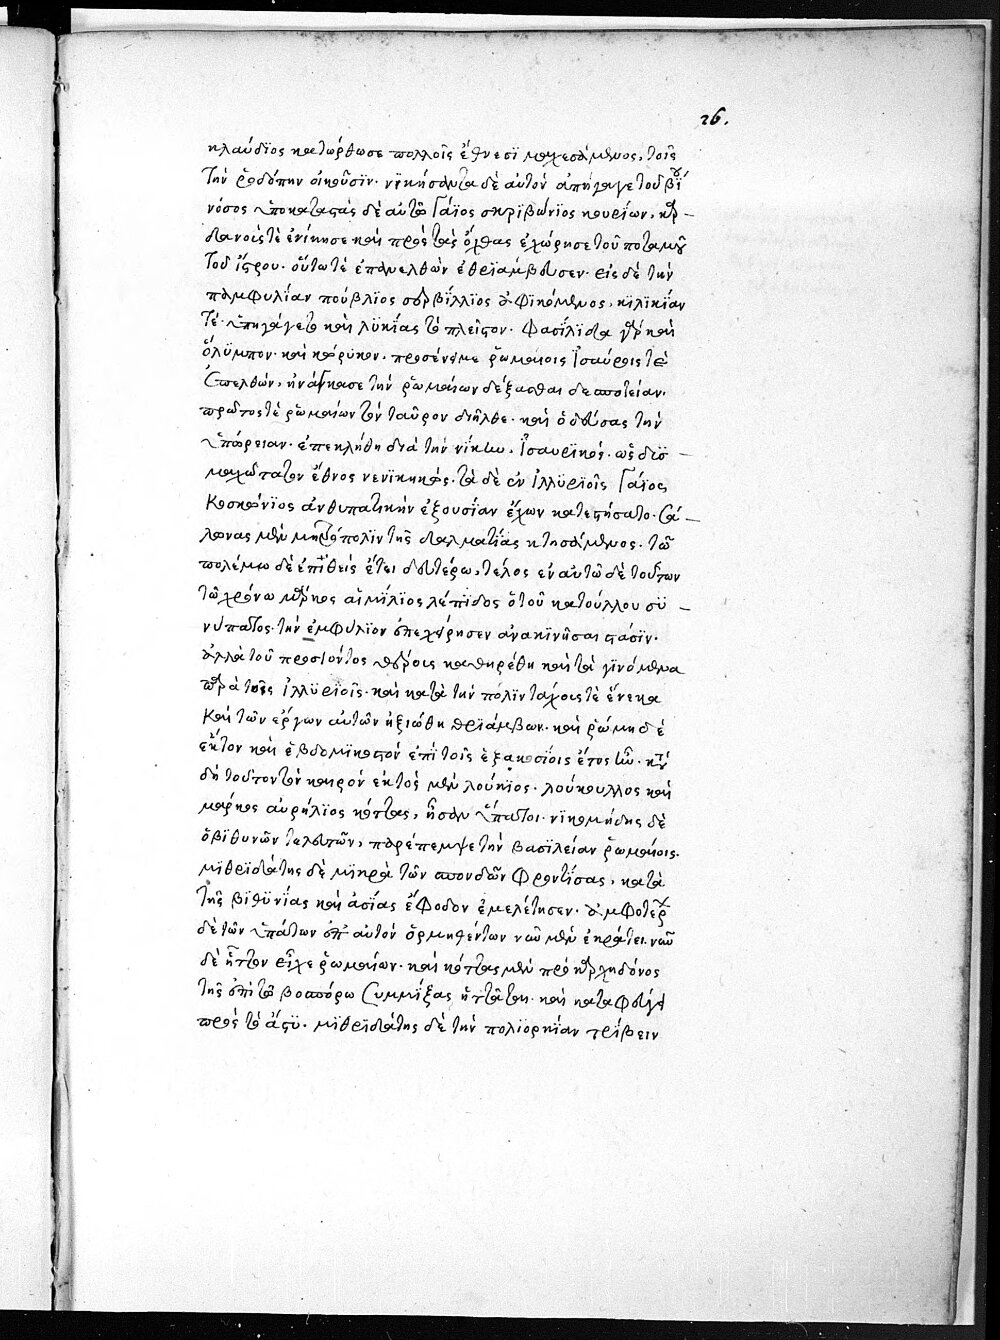 26.
κλαύδϊος κατώρθωσε πολλοῖς ἔθνεσϊ μαχεσάμενος, τοῖς
τὴν ῥοδόπην οἰκοῦσϊν· νϊκήσαντα δὲ αὐτὸν ἀπήγαγε τοῦ βίου
νόσος ὑποκαταστὰς δὲ αὐτῶ Γάϊος σκριβώνϊος κουρίων, καὶ
δανοῖς τὲ ἐνίκησε καὶ πρὸς τὰς ὄχθας ἐχώρησε τοῦ ποταμοῦ
τοῦ ἴστρου· οὕτω τὲ ἐπανελθὼν ἐθρϊάμβευσεν· εἰς δὲ τὴν
παμφυλίαν πούβλϊος σερβίλλϊος ἀφϊκόμενος, κιλικΐαν
τὲ· ὑπηγάγετο καὶ λϋκίας τὸ πλεῖστον· Φασΐλϊδα γὰρ καὶ
ὄλϋμπον· καὶ κώρϋκον· προσένειμε ῥωμαίοις Ἰσαύροις τὲ
ἐπελθὼν, ἠνάγκασε τὴν ῥωμαίων δέξασθαι δεσποτείαν.
πρῶτος τὲ ῥωμαίων τὸν ταῦρον διῆλθε· καὶ ὁδεύσας τὴν
ὑπώρειαν· ἐπεκλήθη διὰ τὴν νίκην, Ἰσαυρϊκός· ὡς δϋσ
μαχώτατον ἔθνος νενϊκηκώς· τὰ δὲ ἐν ἰλλϋρϊοῖς Γάϊος
Κοσκώνϊος ἀνθυπατικὴν ἐξουσΐαν ἔχων κατεστήσατο· Σά
λωνας μὲν μητρόπολϊν τῆς δαλματίας κτησάμενος· τῶ
πολέμω δὲ ἐπιθεὶς ἔτει δευτέρω, τέλος ἐν αὐτῶ δὲ τούτων
τῶ χρόνω μάρκος αἰμίλϊος λέπϊδος ὁ τοῦ κατούλλου σϋ
νύπατος· τὴν ἐμφύλϊον ἐπεχείρησεν ἀνακϊνῆσαι στάσϊν·
ἀλλὰ τοῦ προσϊόντος θέρους καθηρέθη καὶ τὰ γϊνόμενα
παρὰ τοῖς ἰλλϋρϊοῖς· καὶ κατὰ τὴν πόλϊν τάχους τὲ ἕνεκα
καὶ τῶν ἔργων αὐτῶν ἠξιώθη θρϊάμβων· καὶ ῥώμη δὲ
ἕκτον καὶ ἑβδομϊκοστὸν ἐπὶ τοῖς ἑξακοσΐοις ἔτος ἦν· κατὰ
δὴ τοῦτον τὸν καιρὸν ἐκτὸς μὲν λούκϊος· λούκουλλος καὶ
μάρκος αὐρήλϊος κόττας, ἦσαν ὕπατοι· νϊκομήδης δὲ
ὁ βϊθυνῶν τελευτῶν, παρέπεμψε τὴν βασϊλείαν ῥωμαίοις.
μϊθρϊδάτης δὲ μϊκρὰ τῶν σπονδῶν Φροντΐσας, κατὰ
τῆς βϊθϋνΐας καὶ ἀσίας ἔΦοδον ἐμελέτησεν· ἀμΦοτέρων
δὲ τῶν ὑπάτων ἐπ' αὐτὸν ὁρμηθέντων νῦν μὲν ἐκράτει· νῦν
δὲ ἧττον εἶχε ῥωμαίων· καὶ κόττας μὲν πρὸ καρχηδόνος
τῆς ἐπὶ τῶ βοσπόρω συμμΐξας ἡττᾶται· καὶ καταΦεύγει
πρὸς τὸ ἄστϋ· μϊθρϊδάτης δὲ τὴν πολϊορκΐαν τρίβειν